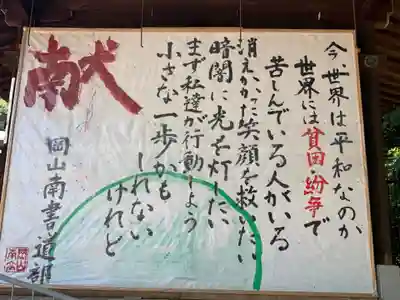 今、世界は平和なのか
世界には貧困紛争で
苦しんでいる人がいる
消えかかった笑顔を救いたい
暗闇に光を灯したい
まず私達が行動しよう
小さな一歩かも
しれない
けれど
献
岡山南書道部